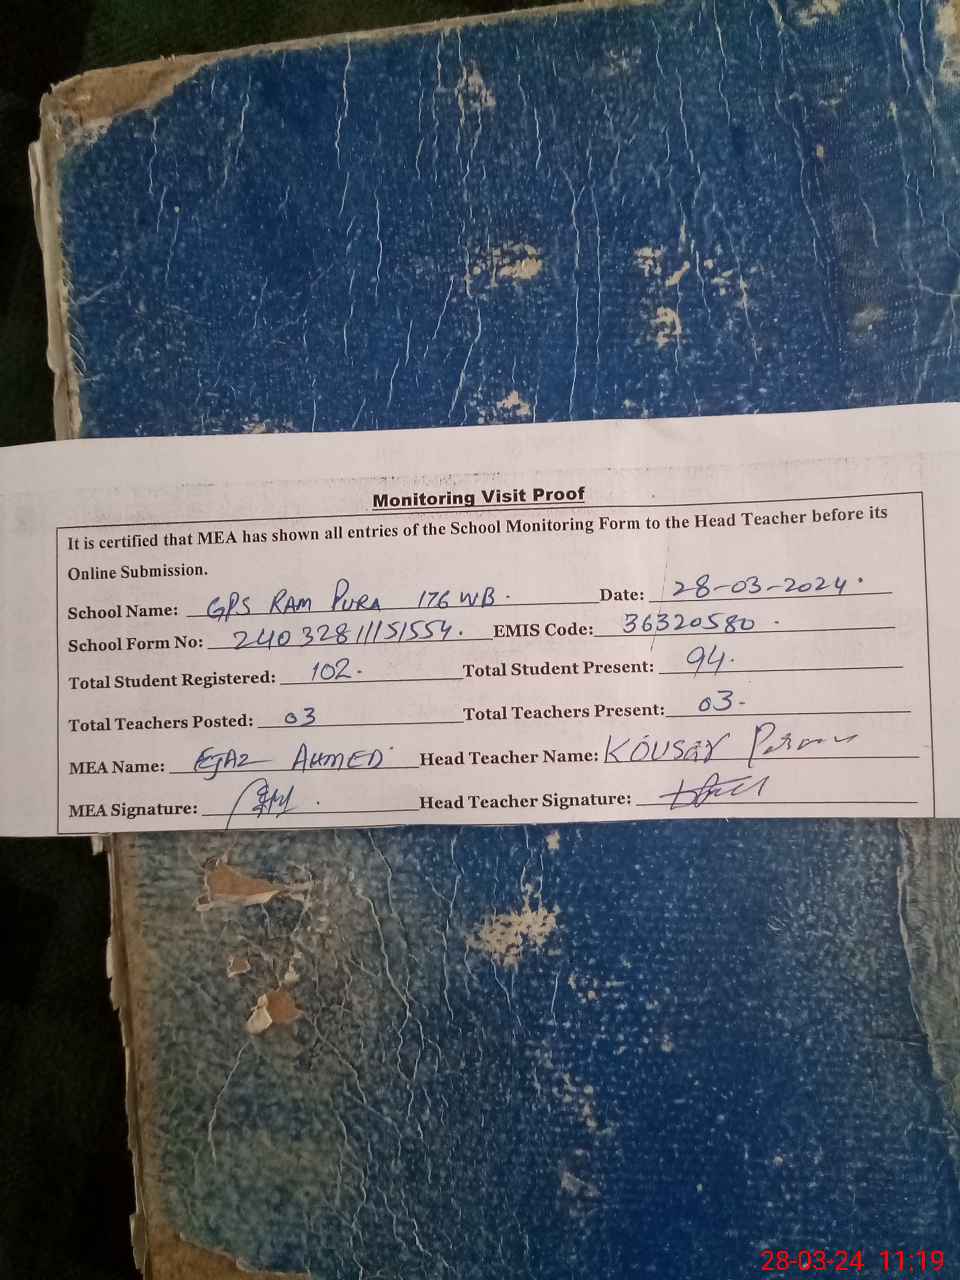 Monitoring Visit Proof
It is certified that MEA has shown all entries of the School Monitoring Form to the Head Teacher before its
Online Submission.
School Name: GPS RAM PURA 176 WB. Date: 28-03-2024.
School Form No: EMIS Code: 36320580.
Total Student Registered: 102. Total Student Present: 94.
Total Teachers Posted: 03 Total Teachers Present: 03-
MEA Name: EJAZ AHMED Head Teacher Name: KOUSAR
MEA Signature: Head Teacher Signature:
28-03-24 11:19